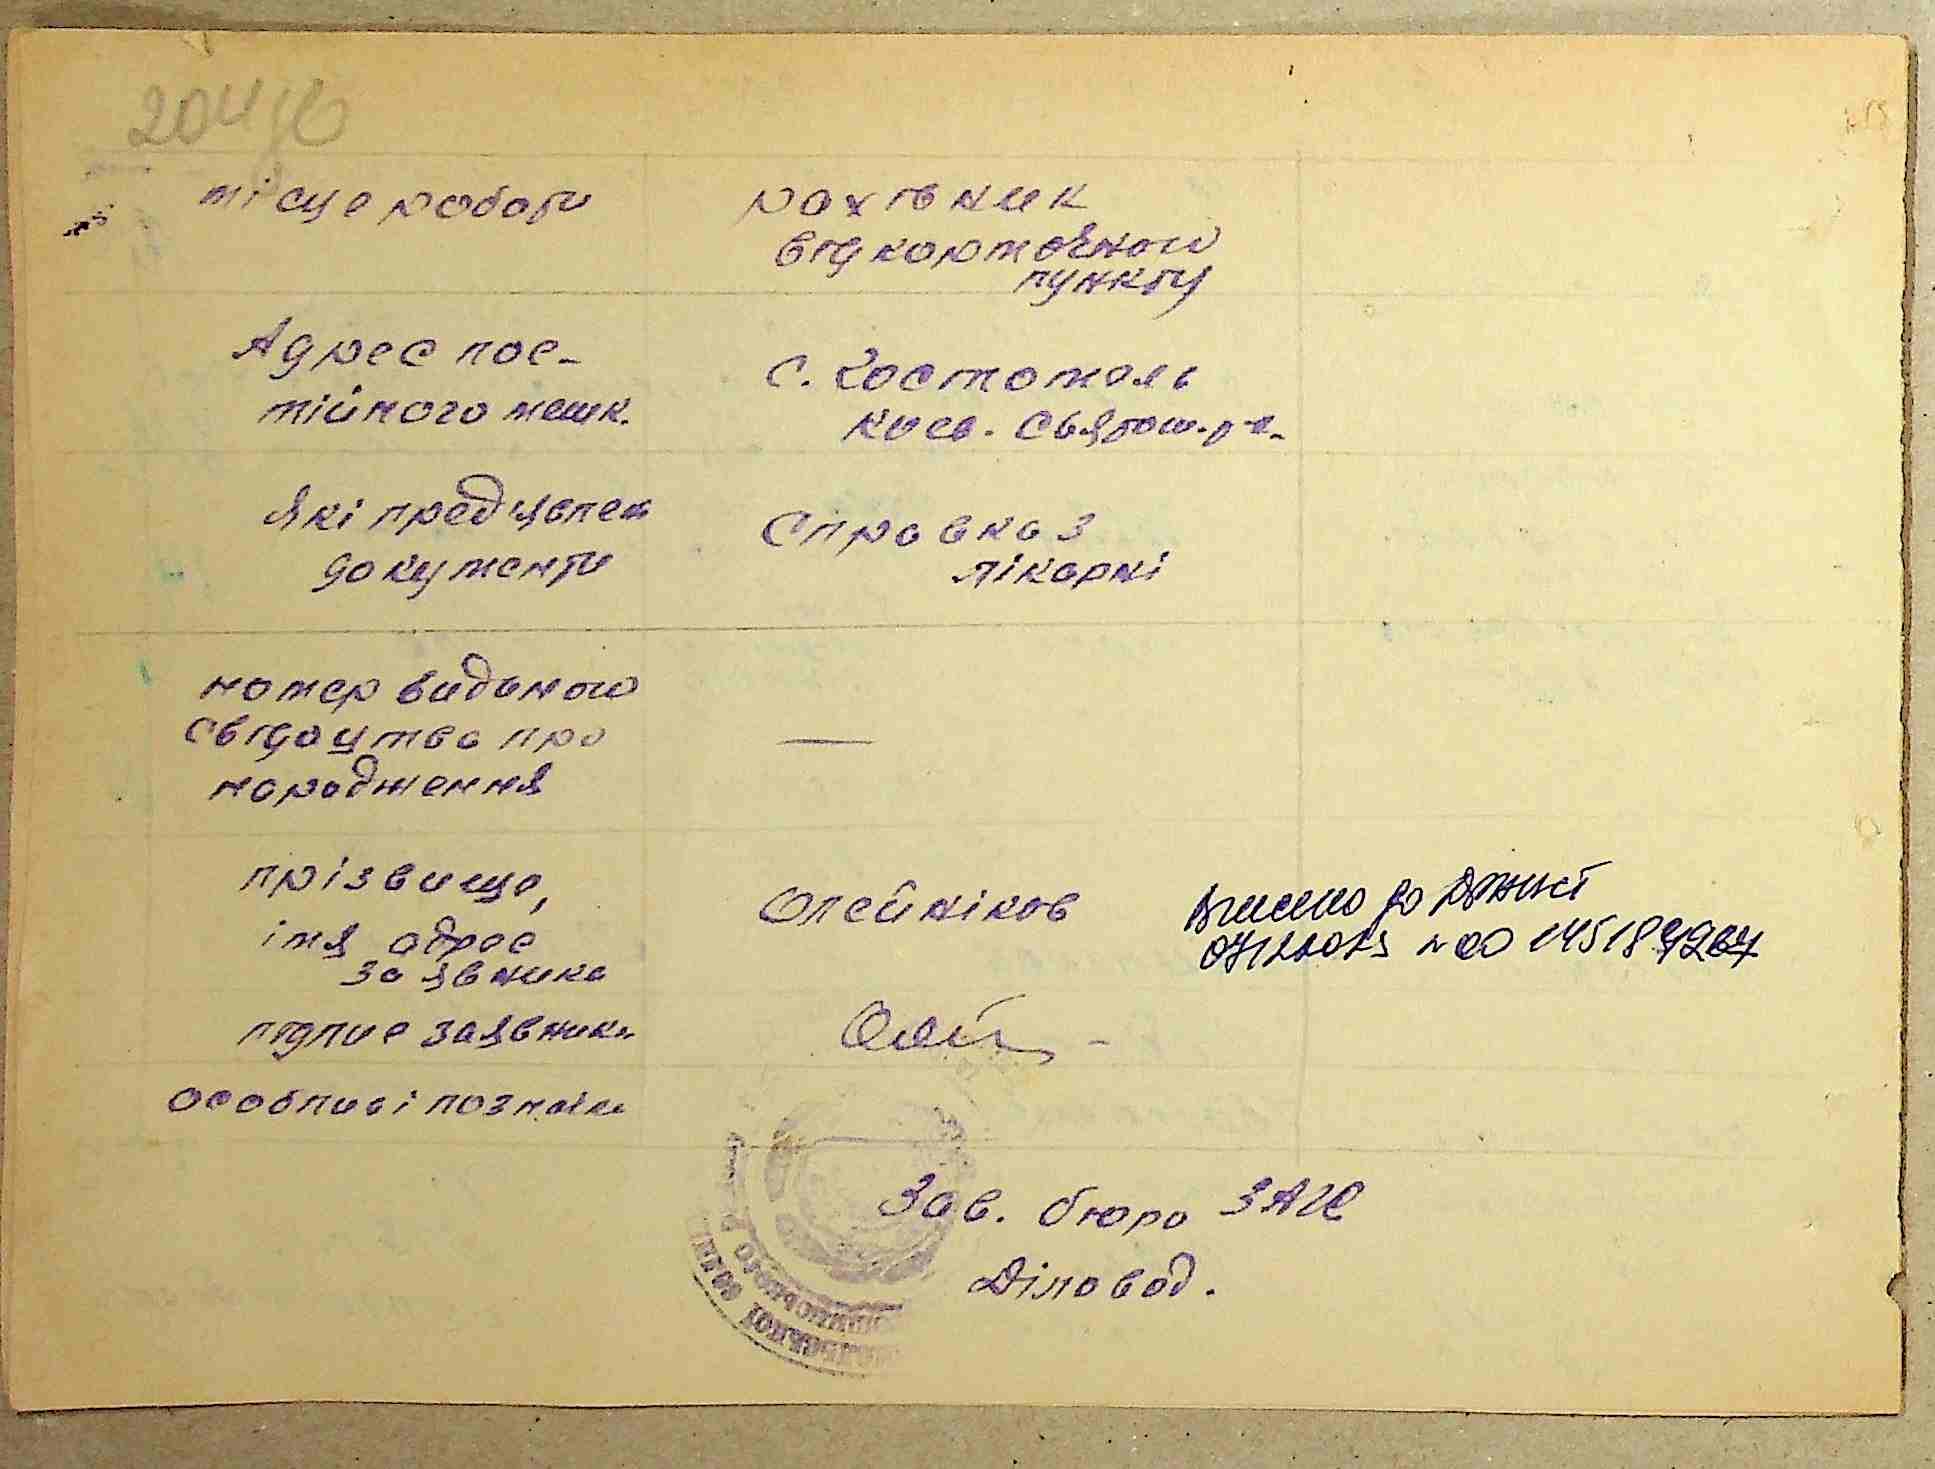 204
місце роботи
рахівник
відкормочного
пункту
Адрес пос-
тійного мешк.
С. Гостомель
Києв. Святош. р-н.
Які пред'явлен
документи
Справка з
лікарні
номер виданого
свідоцтва про
народження
—
прізвище,
імя адрес
заявника
Олейніков
Внесено до
00 145189267
підпис заявника
Олей
особливі познаки
Зав. бюро ЗАГС
Діловод.